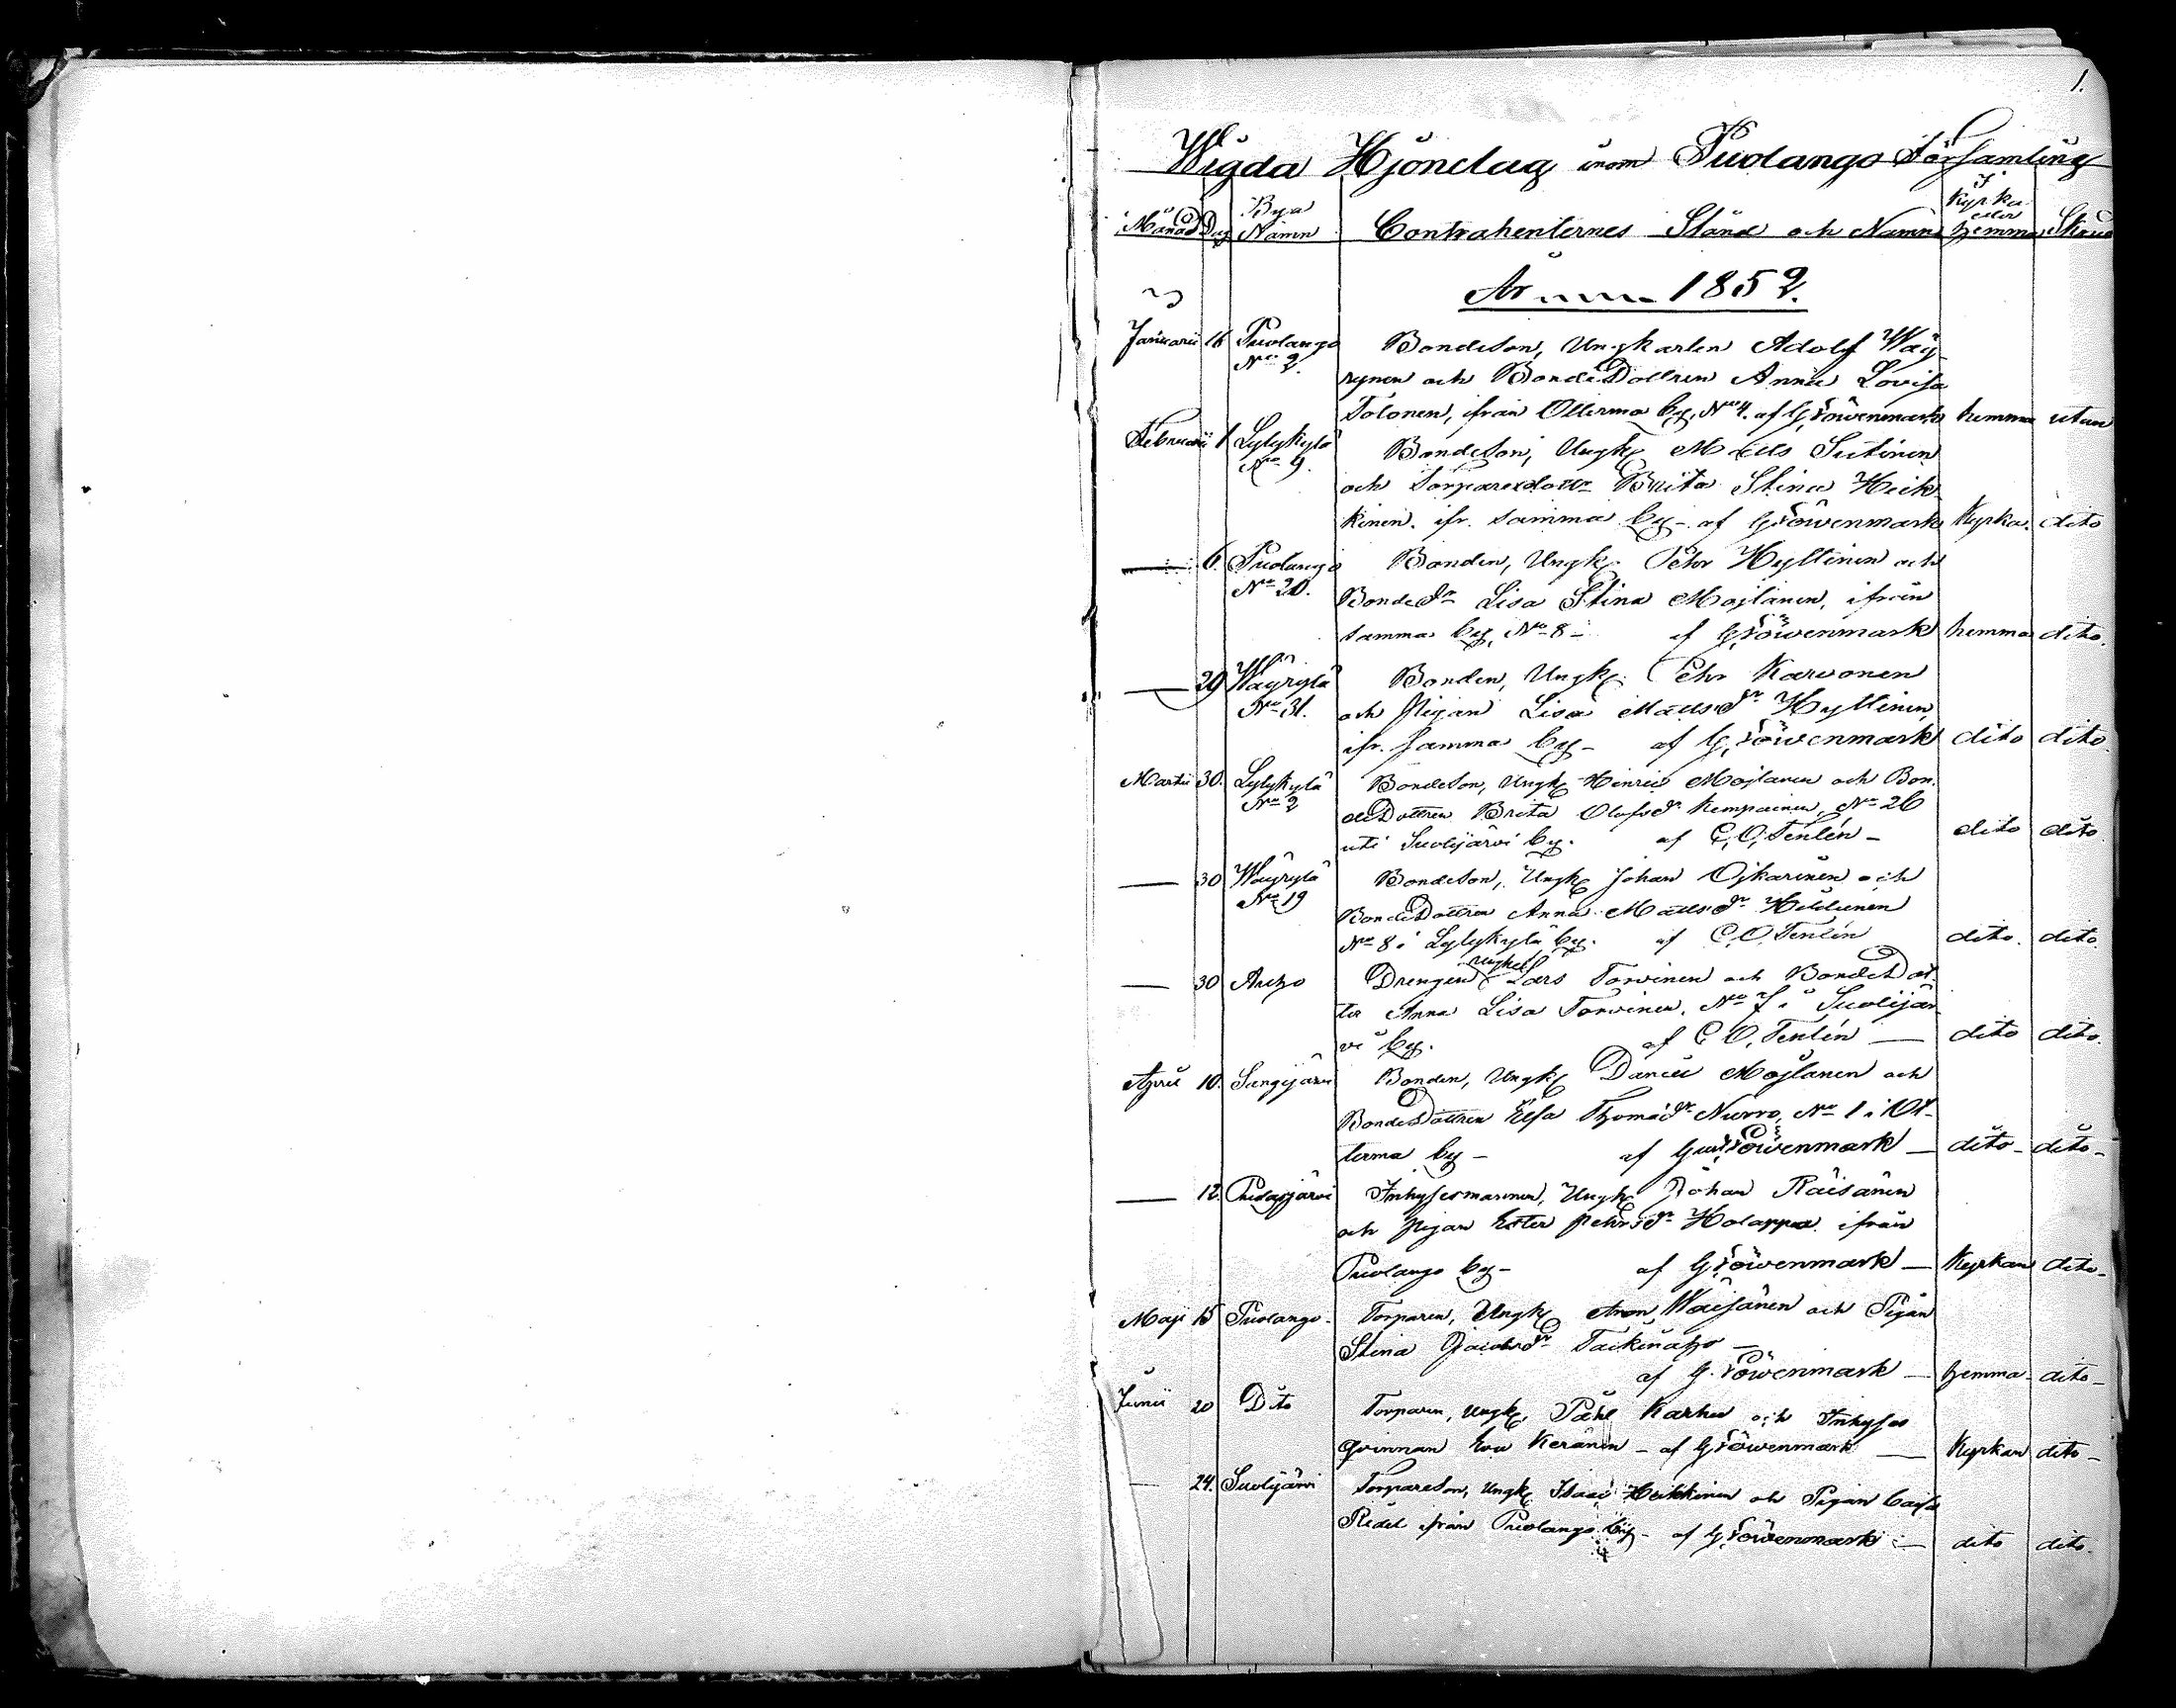 1.
Wigda Hjonelag inom Puolango Församling
Månad Dag Bya Namn Contrahenternes Stånd och Namn I Kyrka eller hemma Skrud
År 1852.
Januarii 16 Puolango Bondeson, Ungkarlen Adolf Wäy-
No 2. rynen och BondeDottren Anna Lovisa
Tolonen, ifrån Otterma by, No 4. af G. Löwenmark hemma utan
Februarii 1 Lylykylä Bondeson, Ungk. Matts Sutinen
No 9. och Torparedottr Brita Stina Heik-
kinen. ifr. samma by - af G. Löwenmark Kyrka. dito
— 6. Puolango Bonden, Ungk. Pehr Hyttinen och
No 20. Bonde Dr Lisa Stina Mojlanen, ifrån
samma by, No 8 - af G. Löwenmark hemma dito.
— 29 Wäyrylä Bonden, Ungk. Pehr Karvonen
No 31. och Pigan Lisa Matts Dr Hyttinen,
ifr. samma by - af G. Löwenmark dito dito.
Martii 30. Lylykylä Bondeson, Ungk. Hinric Mojlanen och Bon-
No 2 deDottren Brita Olofs Dr Kempainen, No 26
uti Suolijärvi by. af C. O. Tenlén - dito dito.
— 30 Wäyrylä Bondeson, Ungk. Johan Ojkarinen och
No 19 BondeDottren Anna Matts Dr Hiltunen
No 8 i Lylykylä by. af C. O. Tenlén dito. dito.
— 30 Auho Drengen Ungk. Lars Torvinen och BondeDot-
ter Anna Lisa Torvinen, No 7 i Suolijär-
vi by. af C. O. Tenlén — dito dito.
April 10. Bonden, Ungk. Daniel Mojlanen och
BondeDottren Elsa Thoma Dr Nurro, No 1 i Ot-
terma by - af Gust. Löwenmark — dito - dito -
— 12. Pudasjärvi Inhysesmannen, Ungk. Johan Räisänen
och Pigan Ester Pehrs Dr Holappa ifrån
Puolango by - af G. Löwenmark — Kyrkan dito -
Maji 15 Puolango - Torparen, Ungk. Aron Wäisänen och Pigan
Stina Jacobs Dr Taikinaho —
af G. Löwenmark — hemma - dito -
Junii 20 Dito Torparen, Ungk. Påhl Karhu och Inhyses
qvinnan Eva Keränen - af G. Löwenmark — Kyrkan dito -
— 24. Suolijärvi Torpareson, Ungk. Isaac Heikkinen och Pigan Caisa
Ridel ifrån Puolango by - af G. Löwenmark — dito dito.